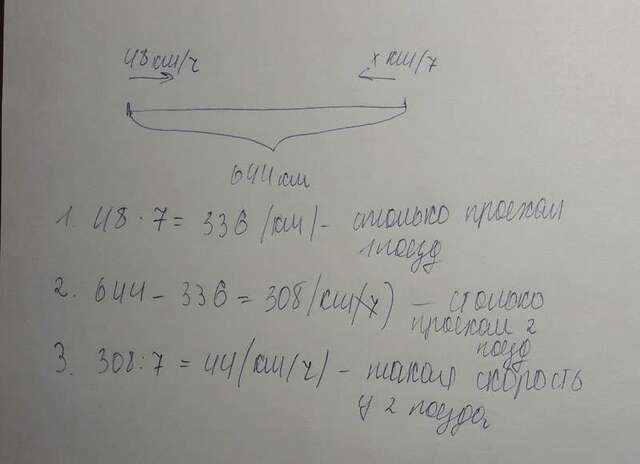 48 км/ч
x км/ч
644 км
1. 48 · 7 = 336 (км) – столько проехал
1 поезд
2. 644 – 336 = 308 (км/ч) – столько
проехал 2
поезд
3. 308 : 7 = 44 (км/ч) – такая скорость
у 2 поезда